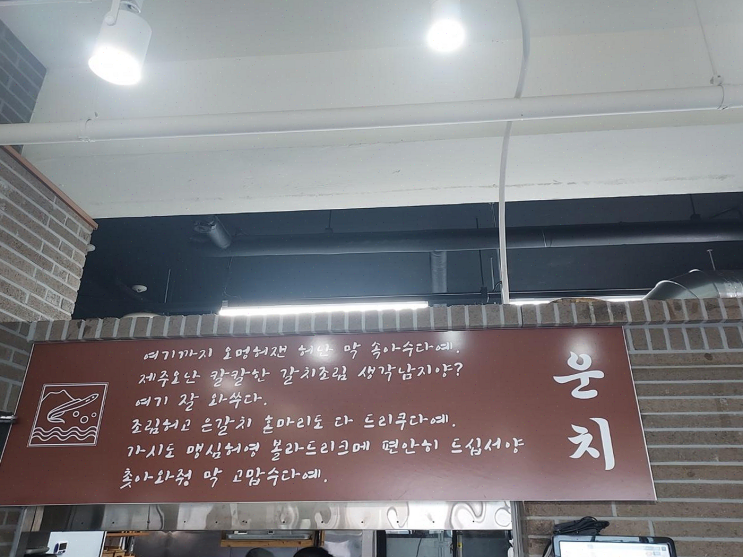 여기까지 오멍허잰 허난 막 속아수다예.
제주오난 칼칼한 갈치조림 생각남지양?
여기 잘 와쑤다.
조림허고 은갈치 ᄒᆞᆫ마리도 다 드리쿠다예.
가시도 맹심허영 볼라드리크메 편안히 드십서양
ᄎᆞᆽ아와줭 막 고맙수다예.
운치